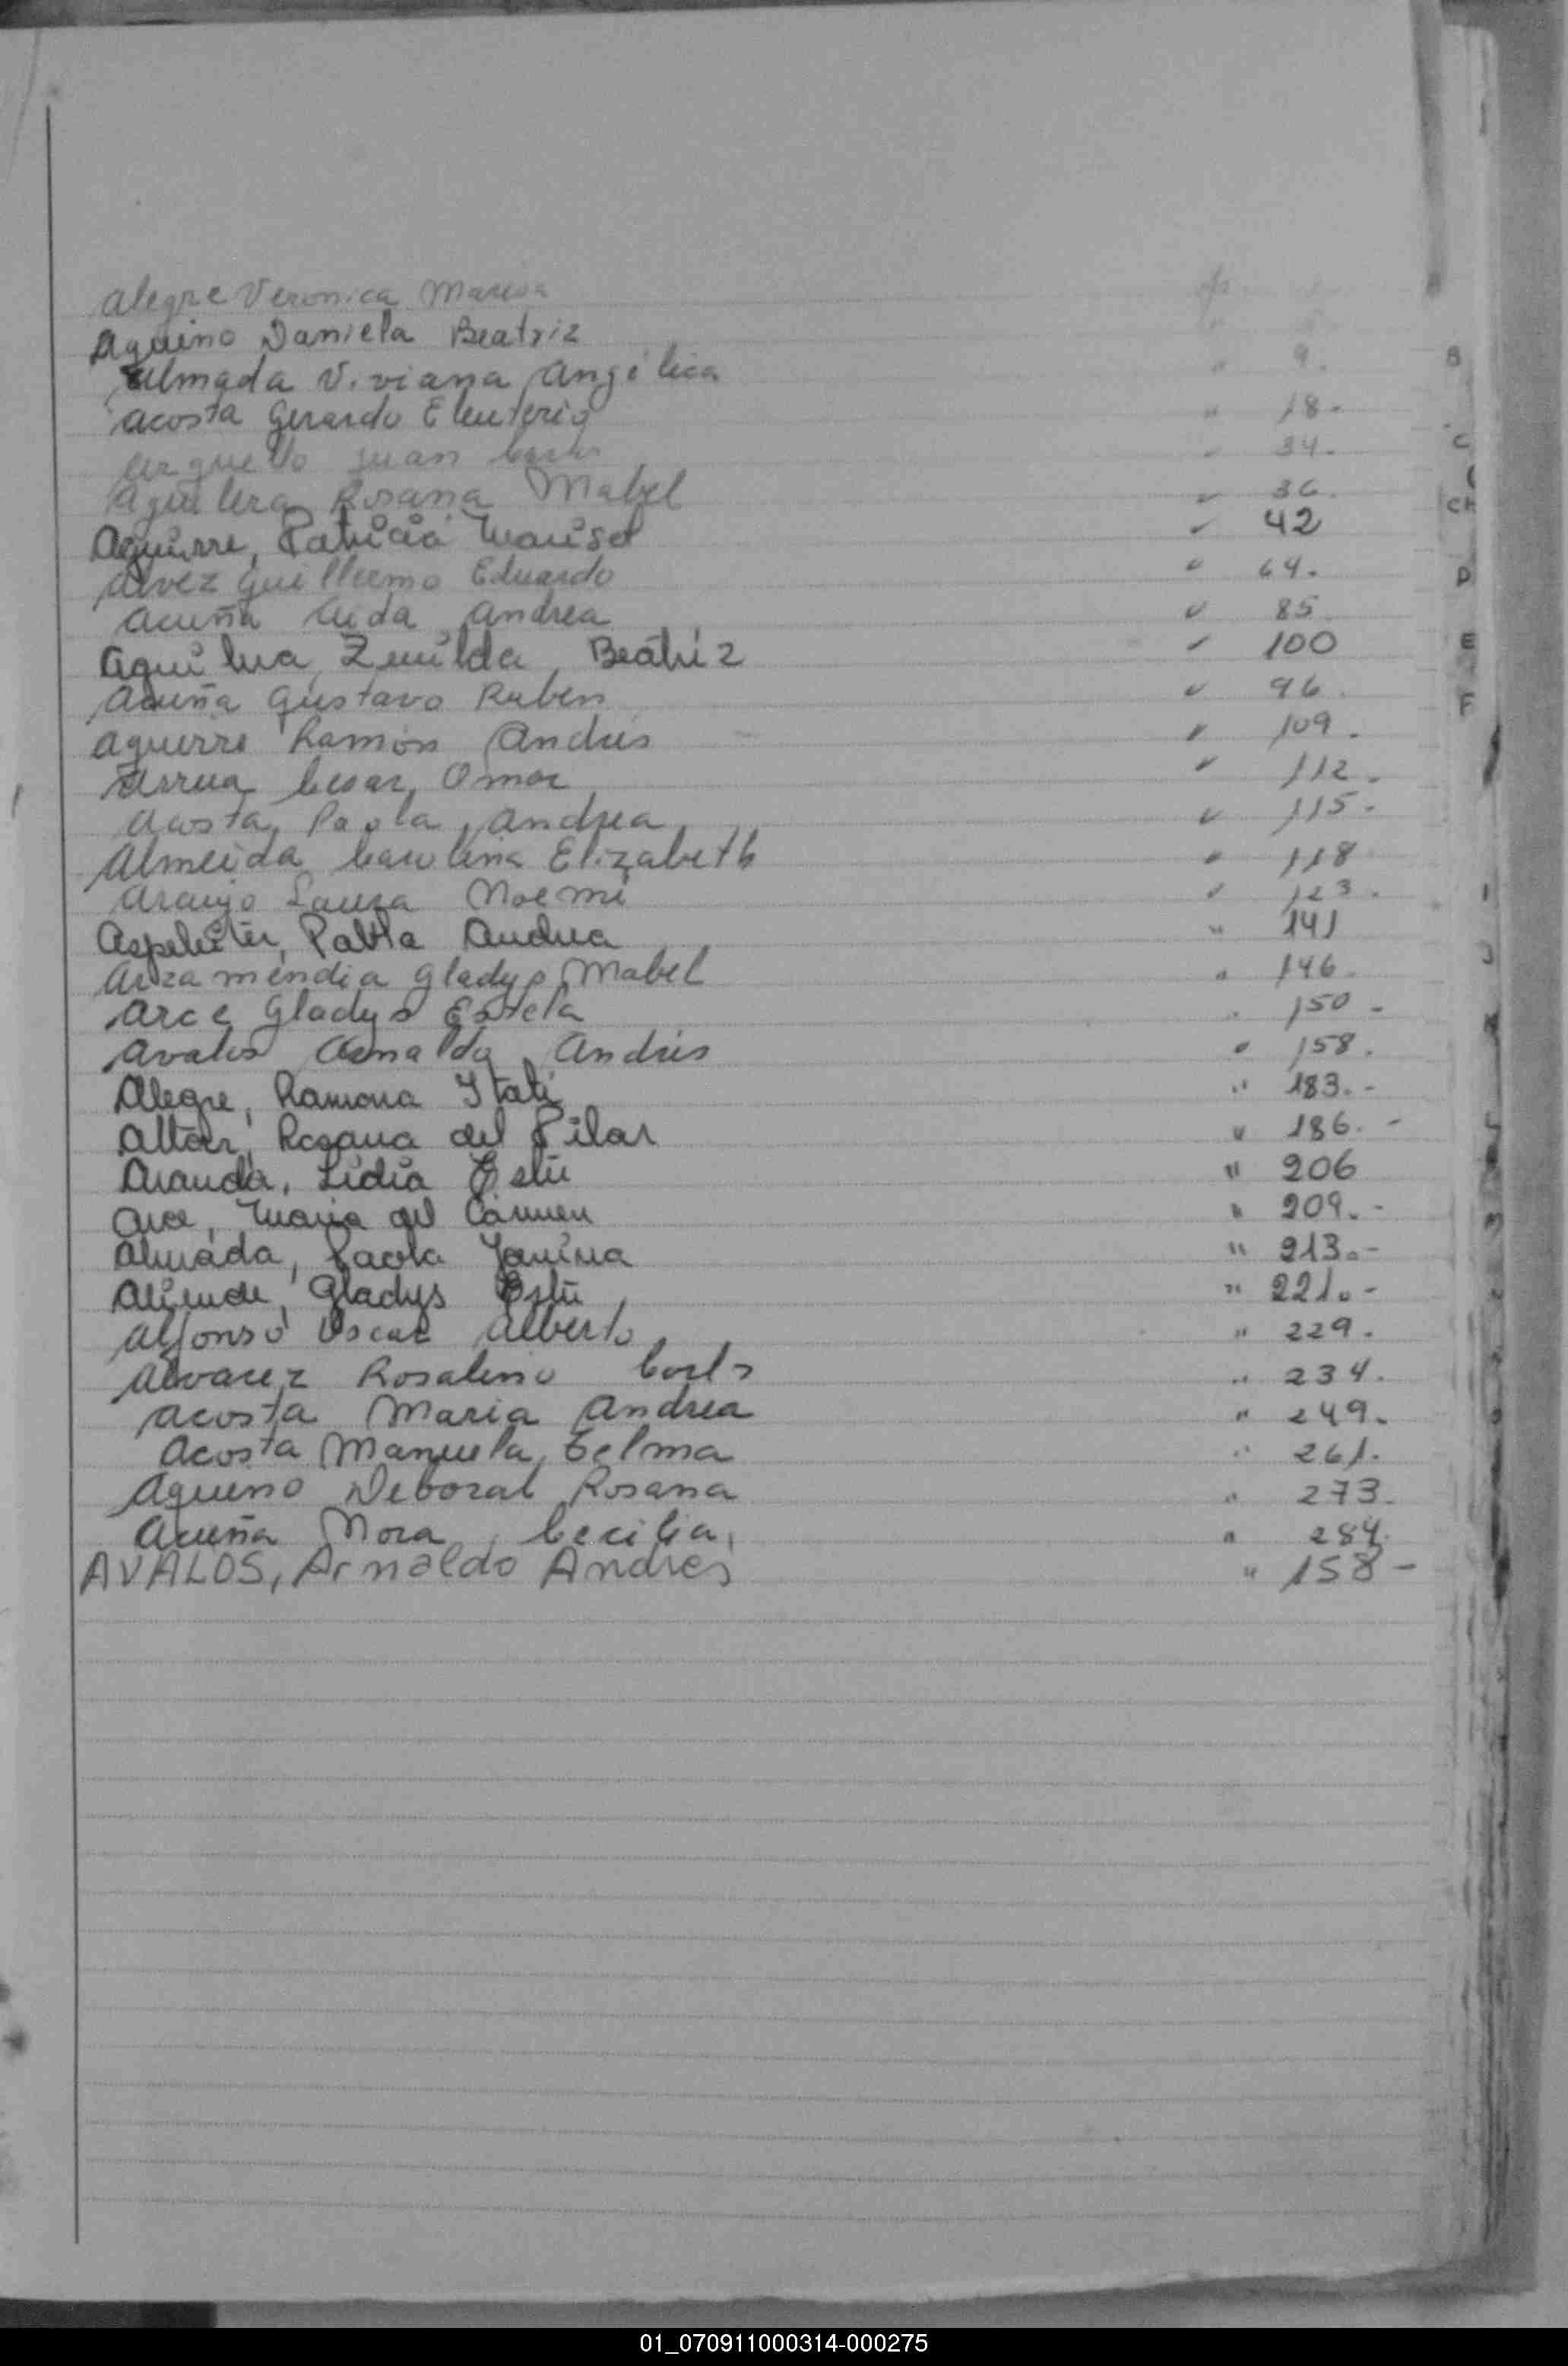 Alegre Veronica Marisa
Aquino Daniela Beatriz
Almada Viviana Angelica " 9.
Acosta Gerardo Eleuterio " 18.
Arguello Juan Carlos " 34.
Aguilera Rosana Mabel " 36.
Aguirre, Patricia Marisel " 42
Alvez Guillermo Eduardo " 64.
Acuña Aida Andrea " 85
Aguilera, Zenilda, Beatriz " 100
Acuña Gustavo Ruben " 96.
Aguirre Ramón Andrés " 109.
Arrua Cesar Omar " 112.
Acosta, Paola, Andrea " 115.
Almeida Carolina Elizabeth " 118
Araujo Laura Noemi " 123.
Pabla Andrea " 141
Arzamendia Gladys Mabel " 146.
Arce Gladys Estela " 150 -
Avalos Arnaldo Andrés " 158.
Alegre, Ramona Itatí " 183.-
Rosana del Pilar " 186.-
Aranda, Lidia Ester " 206
Arce, Maria del Carmen " 209.-
Almada, Paola Janina " 213.-
Gladys Ester " 221.-
Alfonso Oscar Alberto " 229.
Alvarez Rosalino Carlos " 234.
Acosta Maria Andrea " 249.
Acosta Manuela, Telma " 261.
Aquino Deborah Rosana " 273.
Acuña Nora, Cecilia, " 284.
AVALOS, Arnaldo Andres " 158-
B
C
CH
D
E
F
I
J
01_070911000314-000275